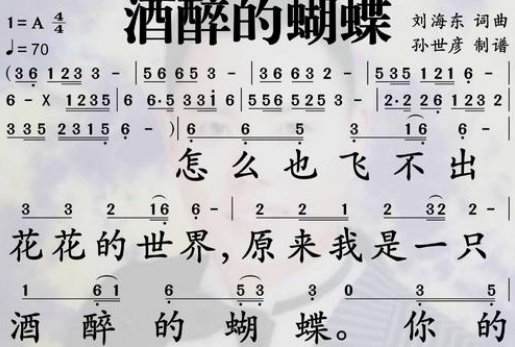 酒醉的蝴蝶
1=A 4/4 刘海东 词曲
♩=70 孙世彦 制谱
(36 123 3 - | 566 653 - | 366 632 - | 535 121 6 |
6 - X 1235 | 6 6·5 331 6 | 556 525 3 - | 2·2 26 123 2 |
335 2315 6 - )| 6 6 5 3 16 6 - |
怎么也飞不出
3 3 2 16 6 - | 2 2 1 2 32 2 - |
花花的世界,原来我是一只
1 61 6 53 3 0 3 5 |
酒醉的蝴蝶。你的